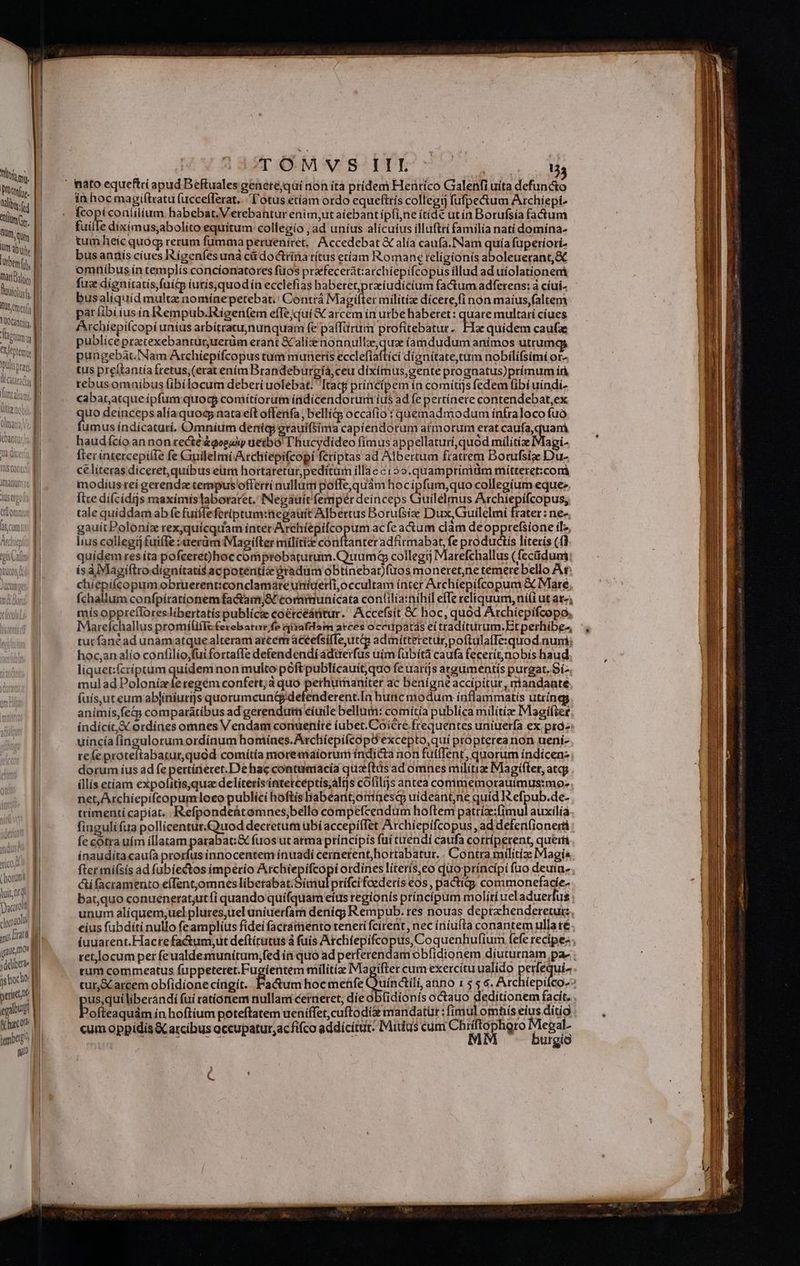 TOMVS III. 133
nato equeſtri apud Beſtuales genere, qui non ita pridem Henrico Galenſi uita defuncto
in hoc magiſtratu ſucceſſerat. Totus etiam ordo equeſtris collegij ſuſpectum Archiepi-
ſcopi conſilium habebat. Verebantur enim, ut aiebant ipſi, ne itidē ut in Boruſsia factum
fuiſſe diximus, abolito equitum collegio, ad unius alicuius illuſtri familia nati domina-
tum heic quoq; rerum ſumma perueniret. Accedebat & alia cauſa. Nam quia ſuperiori-
bus annis ciues Rigenſes unà cū doctrina ritus etiam Romanę religionis aboleuerant, &
omnibus in templis concionatores ſuos præfecerāt: archiepiſcopus illud ad uiolationem
ſuæ dignitatis, ſuiq; iuris, quod in eccleſias haberet, præiudicium factum adferens: à ciui-
bus aliquid multæ nomine petebat. Contrà Magiſter militiæ dicere, ſi non maius, ſaltem
par ſibi ius in Rempub. Rigenſem eſſe, qui & arcem in urbe haberet: quare multari ciues
Archiepiſcopi unius arbitratu, nunquam ſe paſſurum profitebatur. Hæ quidem cauſæ
publice prætexebantur, uerùm erant & aliæ nonnullæ, quæ iamdudum animos utrumq;
pungebāt. Nam Archiepiſcopus tum muneris eccleſiaſtici dignitate, tum nobiliſsimi or-
tus preſtantia fretus, (erat enim Brandeburgia, ceu diximus, gente prognatus) primum in
rebus omnibus ſibi locum deberi uolebat. Itaq; principem in comitijs ſedem ſibi uindi-
cabat, atque ipſum quoq; comitiorum indicendorum ius ad ſe pertinere contendebat, ex
quo deinceps alia quoq; nata eſt offenſa, belliq; occaſio: quemadmodum infra loco ſuo
ſumus indicaturi. Omnium deniq; grauiſsima capiendorum armorum erat cauſa, quam
haud ſcio an non rectè uerbo Thucydideo ſimus appellaturi, quòd militiæ Magi-
ſter intercepiſſe ſe Guilelmi Archiepiſcopi ſcriptas ad Albertum fratrem Boruſsiæ Du-
cē literas diceret, quibus eum hortaretur, peditum illac quamprimùm mitteret: com
modius rei gerendæ tempus offerri nullum poſſe, quàm hoc ipſum, quo collegium eque-
ſtre diſcidijs maximis laboraret. Negauit ſemper deinceps Guilelmus Archiepiſcopus,
tale quiddam ab ſe fuiſſe ſcriptum: negauit Albertus Boruſsiæ Dux, Guilelmi frater: ne-
gauit Poloniæ rex, quicquam inter Archiepiſcopum ac ſe actum clàm de oppreſsione il-
lius collegij fuiſſe: uerùm Magiſter militiæ conſtanter adfirmabat, ſe productis literis (ſi
quidem res ita poſceret) hoc comprobaturum. Quumq; collegij Mareſchallus (ſecūdum
is à Magiſtro dignitatis ac potentiæ gradum obtinebat) ſuos moneret, ne temere bello Ar
chiepiſcopum obruerent: conclamare uniuerſi, occultam inter Archiepiſcopum & Mare
ſchallum conſpirationem factam, & communicata conſilia: nihil eſſe reliquum, niſi ut ar-
mis oppreſſores libertatis publicæ coërceātur. Acceſsit & hoc, quòd Archiepiſcopo,
Mareſchallus promiſiſſe ferebatur, ſe quaſdam arces occupatas ei traditurum. Et perhibe-
tur ſane ad unam atque alteram arcem acceſsiſſe, utq; admitteretur, poſtulaſſe: quod num
hoc, an alio conſilio, ſui fortaſſe defendendi aduerſus uim ſubita cauſa fecerit, nobis haud
liquet: ſcriptum quidem non multo pòſt publicauit, quo ſe uarijs argumentis purgat. Si-
mul ad Poloniæ ſe regem confert, à quo perhumaniter ac benigne accipitur, mandante
ſuis, ut eum ab iniurijs quorumcunq; defenderent. In hunc modum inflammatis utrinq;
animis, ſeq; comparātibus ad gerendum ciuile bellum: comitia publica militiæ Magiſter
indicit, & ordines omnes Vendam conuenire iubet. Coiere frequentes uniuerſa ex pro-
uincia ſingulorum ordinum homines. Archiepiſcopo excepto, qui propterea non ueni-
re ſe proteſtabatur, quòd comitia more maiorum indicta non fuiſſent, quorum indicen-
dorum ius ad ſe pertineret. De hac contumacia quæſtus ad omnes militiæ Magiſter, atq;
illis etiam expoſitis, quæ de literis interceptis, alijs cōſilijs antea commemorauimus: mo-
net, Archiepiſcopum loco publici hoſtis habeant, omnesq; uideant, ne quid Reſpub. de-
trimenti capiat. Reſpondent omnes, bello compeſcendum hoſtem patriæ: ſimul auxilia
ſinguli ſua pollicentur. Quod decretum ubi accepiſſet Archiepiſcopus, ad defenſionem
ſe cōtra uim illatam parabat: & ſuos ut arma principis ſui tuendi cauſa corriperent, quem
inaudita cauſa prorſus innocentem inuadi cernerent, hortabatur. Contra militiæ Magi-
ſter miſsis ad ſubiectos imperio Archiepiſcopi ordines literis, eo quo principi ſuo deuin-
cti ſacramento eſſent, omnes liberabat. Simul priſci fœderis eos, pactiq; commonefacie-
bat, quo conuenerat, ut ſi quando quiſquam eius regionis principum moliri uel aduerſus
unum aliquem, uel plures, uel uniuerſam deniq; Rempub. res nouas depræhenderetur:
eius ſubditi nullo ſe amplius fidei ſacramento teneri ſcirent, nec iniuſta conantem ulla re
iuuarent. Hac re factum, ut deſtitutus à ſuis Archiepiſcopus, Coquenhuſium ſeſe recipe-
ret, locum per ſe ualde munitum, ſed in quo ad perferendam obſidionem diuturnam pa-
rum commeatus ſuppeteret. Fugientem militiæ Magiſter cum exercitu ualido perſequi-
tur, & arcem obſidione cingit. Factum hoc menſe Quinctili, anno 1556. Archiepiſco-
pus, qui liberandi ſui rationem nullam cerneret, die obſidionis octauo deditionem facit.
Poſteaquàm in hoſtium poteſtatem ueniſſet, cuſtodiæ mandatur: ſimul omnis eius ditio
cum oppidis & arcibus occupatur, ac fiſco addicitur. Miſſus cum Chriſtophoro Megal-
MM burgio